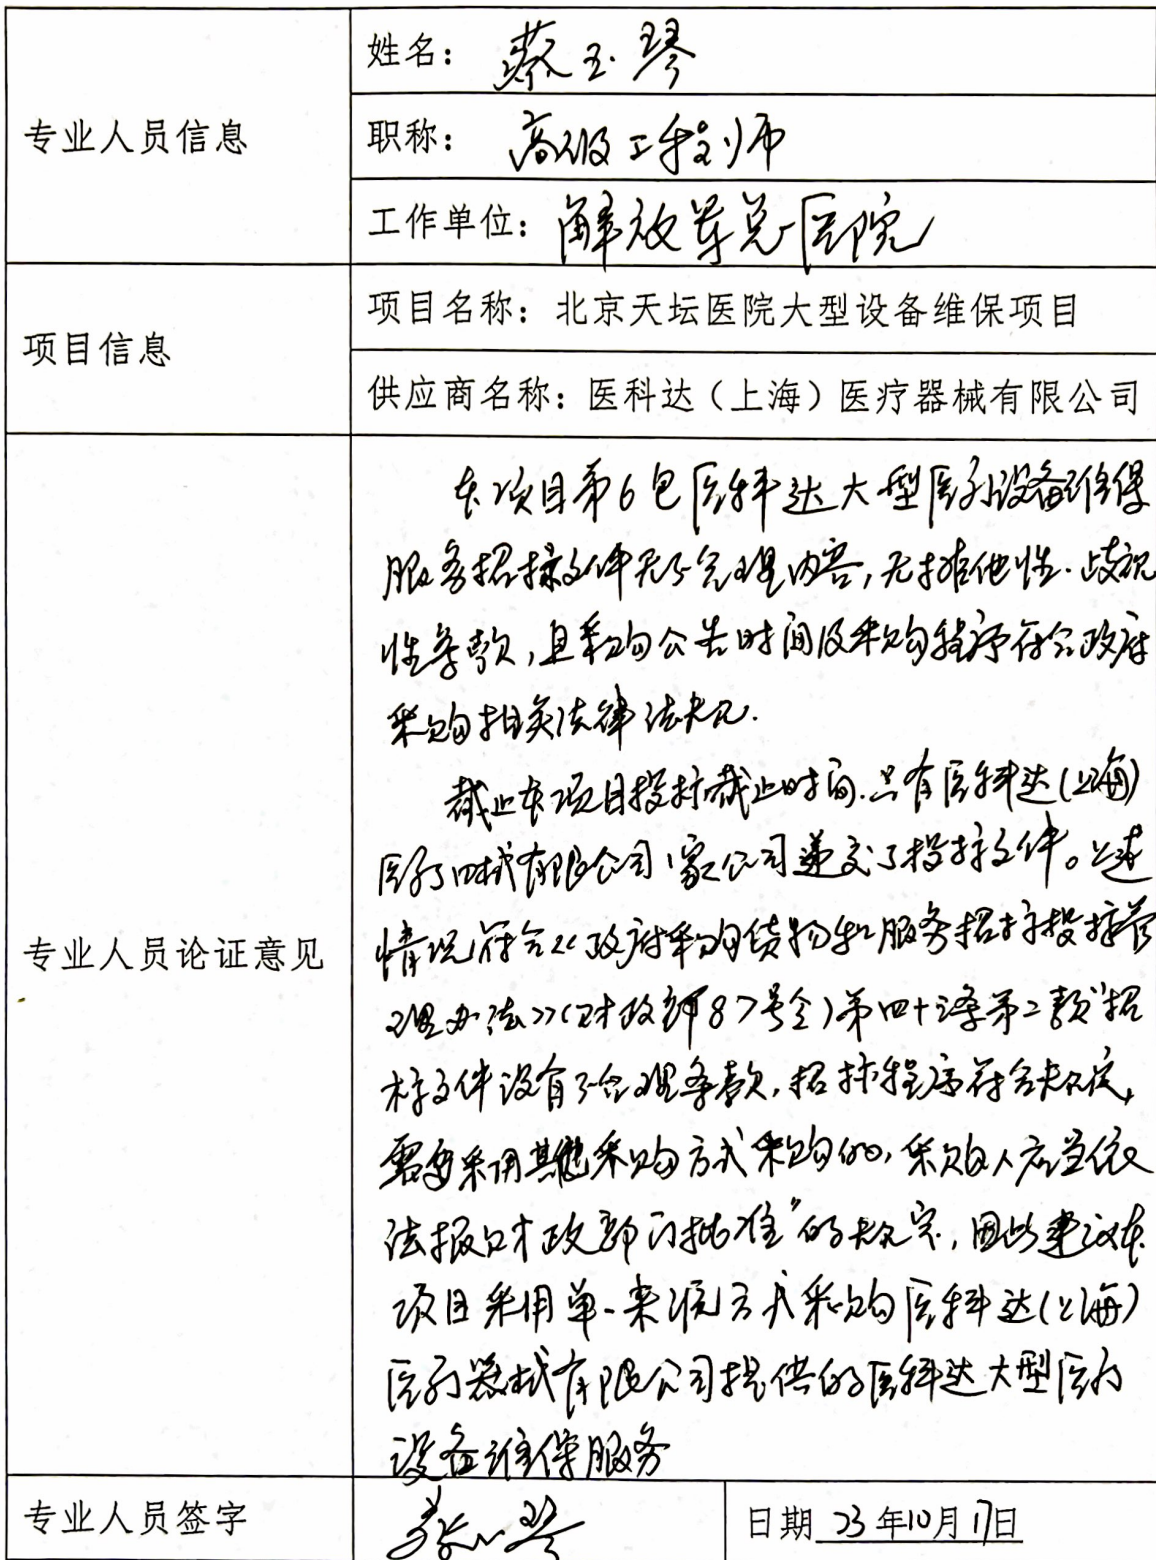 专业人员信息
姓名：蔡玉琴
职称：高级工程师
工作单位：解放军总医院
项目信息
项目名称：北京天坛医院大型设备维保项目
供应商名称：医科达（上海）医疗器械有限公司
专业人员论证意见
本项目第6包医科达大型医疗设备维保
服务招标文件无不合理内容，无排他性.歧视
性条款，且采购公告时间及采购程序符合政府
采购相关法律法规.
截止本项目投标截止时间.只有医科达(上海)
医疗器械有限公司1家公司递交了投标文件。上述
情况符合《政府采购货物和服务招标投标管
理办法》(财政部87号令)第四十三条第二款“招
标文件没有不合理条款，招标程序符合规定，
需要采用其他采购方式采购的，采购人应当依
法报财政部门批准”的规定，因此建议本
项目采用单一来源方式采购医科达(上海)
医疗器械有限公司提供的医科达大型医疗
设备维保服务
专业人员签字
蔡玉琴
日期 23年10月17日